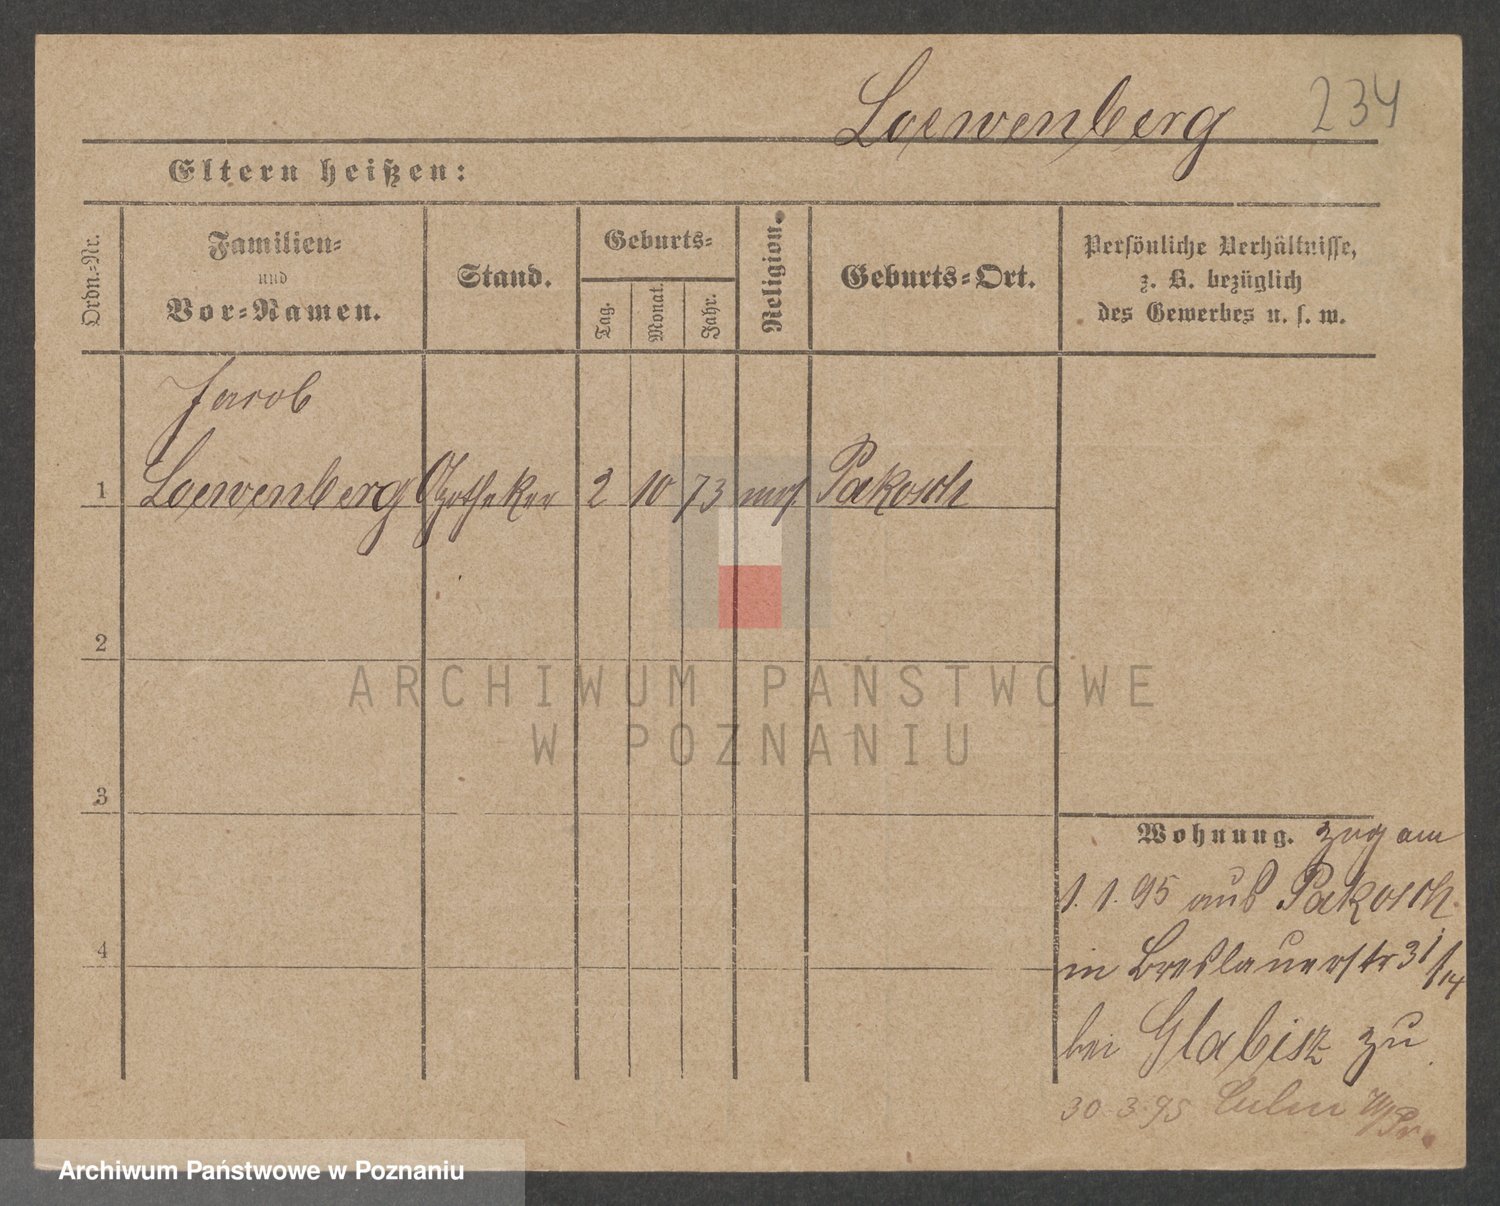 Loewenberg 234
Eltern heißen:
Ordn.-Nr.
Familien-
und
Vor-Namen.
Stand.
Geburts-
Tag.
Monat.
Jahr.
Religion.
Geburts-Ort.
Persönliche Verhältnisse,
z. B. bezüglich
des Gewerbes u. s. w.
Jacob
1 Loewenberg Apotheker 2 10 73 mos. Pakosch
2
ARCHIWUM PAŃSTWOWE
W POZNANIU
3
Wohnung. zog am
1. 1. 95 aus Pakosch
4
in Breslauerstr 31/14
bei Glabisz zu
30.3.95 Culm W/Pr.
Archiwum Państwowe w Poznaniu